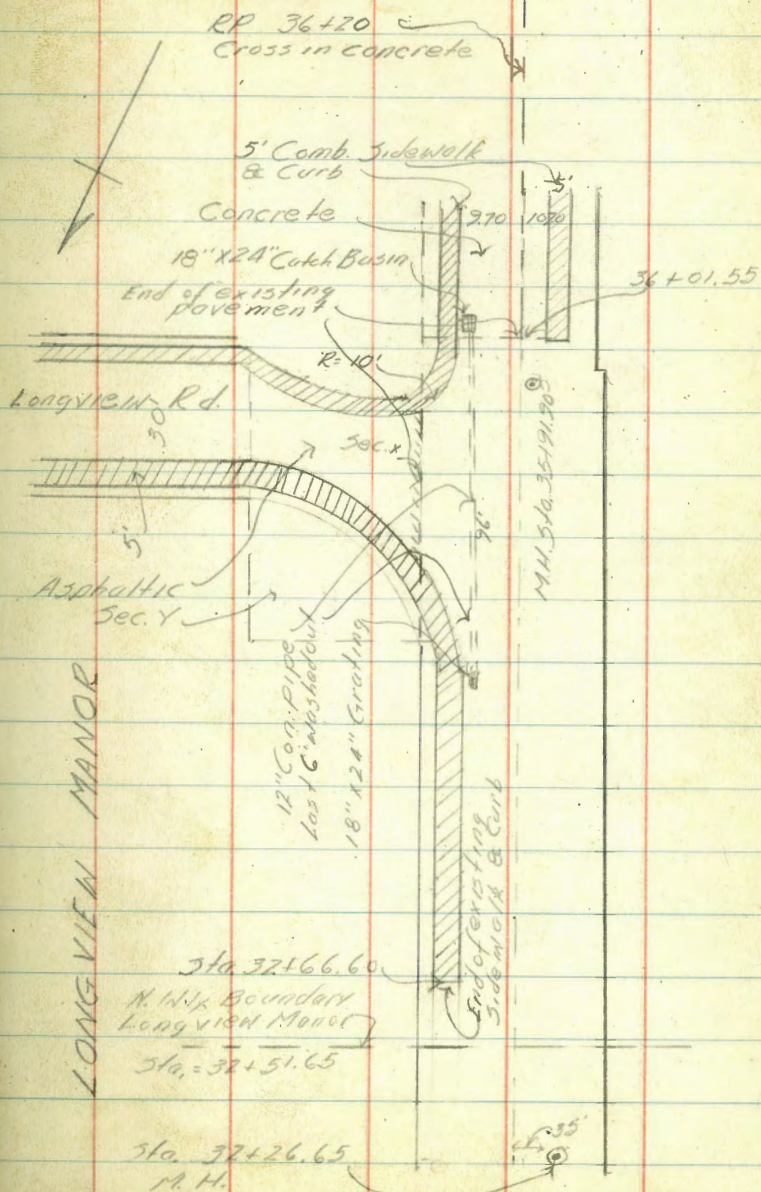 RP 36+20
Cross in concrete
5' Comb. Sidewalk
& Curb
5'
Concrete
9.70 10.20
18"X24" Catch Basin
36+01.55
End of existing
pavement
R=10'
Longview Rd.
30'
Sec. X
M.H. Sta. 35+91.90
5'
96'
Asphaltic
Sec. Y
12" Con. Pipe
Last 6' washed out
18" X 24" Grating
LONGVIEW MANOR
End of existing
Sidewalk & Curb
Sta. 32+66.60
Boundary
Longview Manor
Sta. = 32+51.65
.35'
Sta. 32+26.65
M.H.